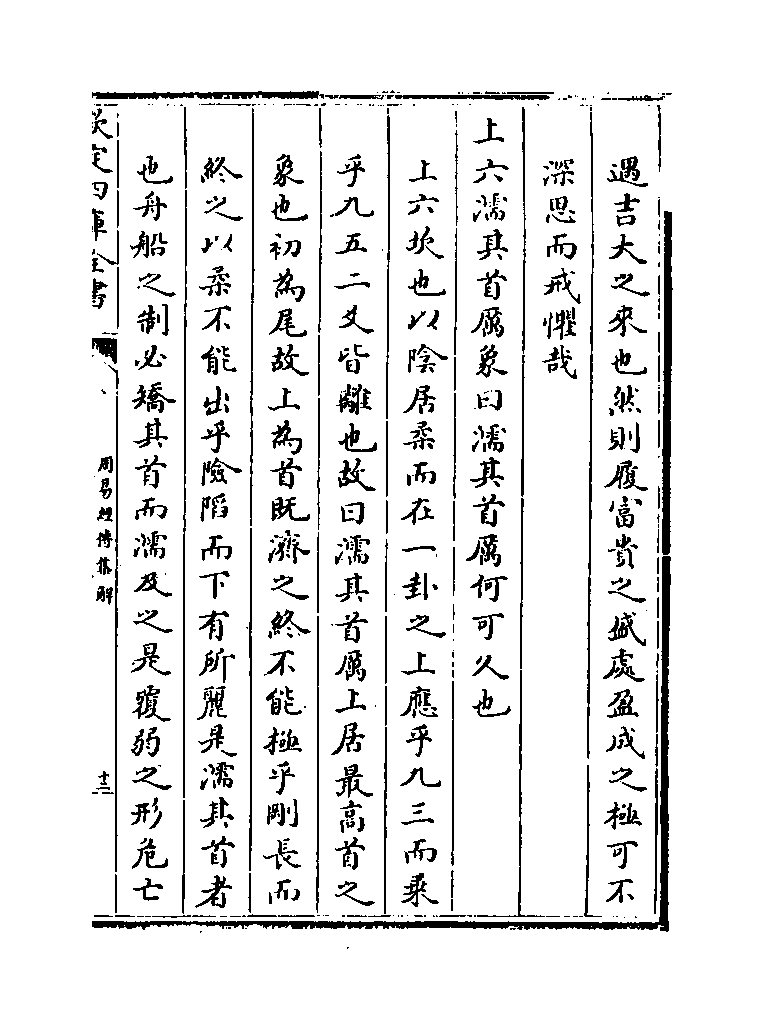 遇吉大之來也然則履富貴之盛處盈成之極可不
深思而戒懼哉
上六濡其首厲象曰濡其首厲何可久也
上六坎也以陰居柔而在一卦之上應乎九三而乗
乎九五二爻皆離也故曰濡其首厲上居最高首之
象也初為尾故上為首既濟之終不能極乎剛長而
終之以柔不能出乎險陷而下有所麗是濡其首者
也舟船之制必矯其首而濡及之是覆弱之形危亡
欽定四庫全書
周易經傳集解
十二